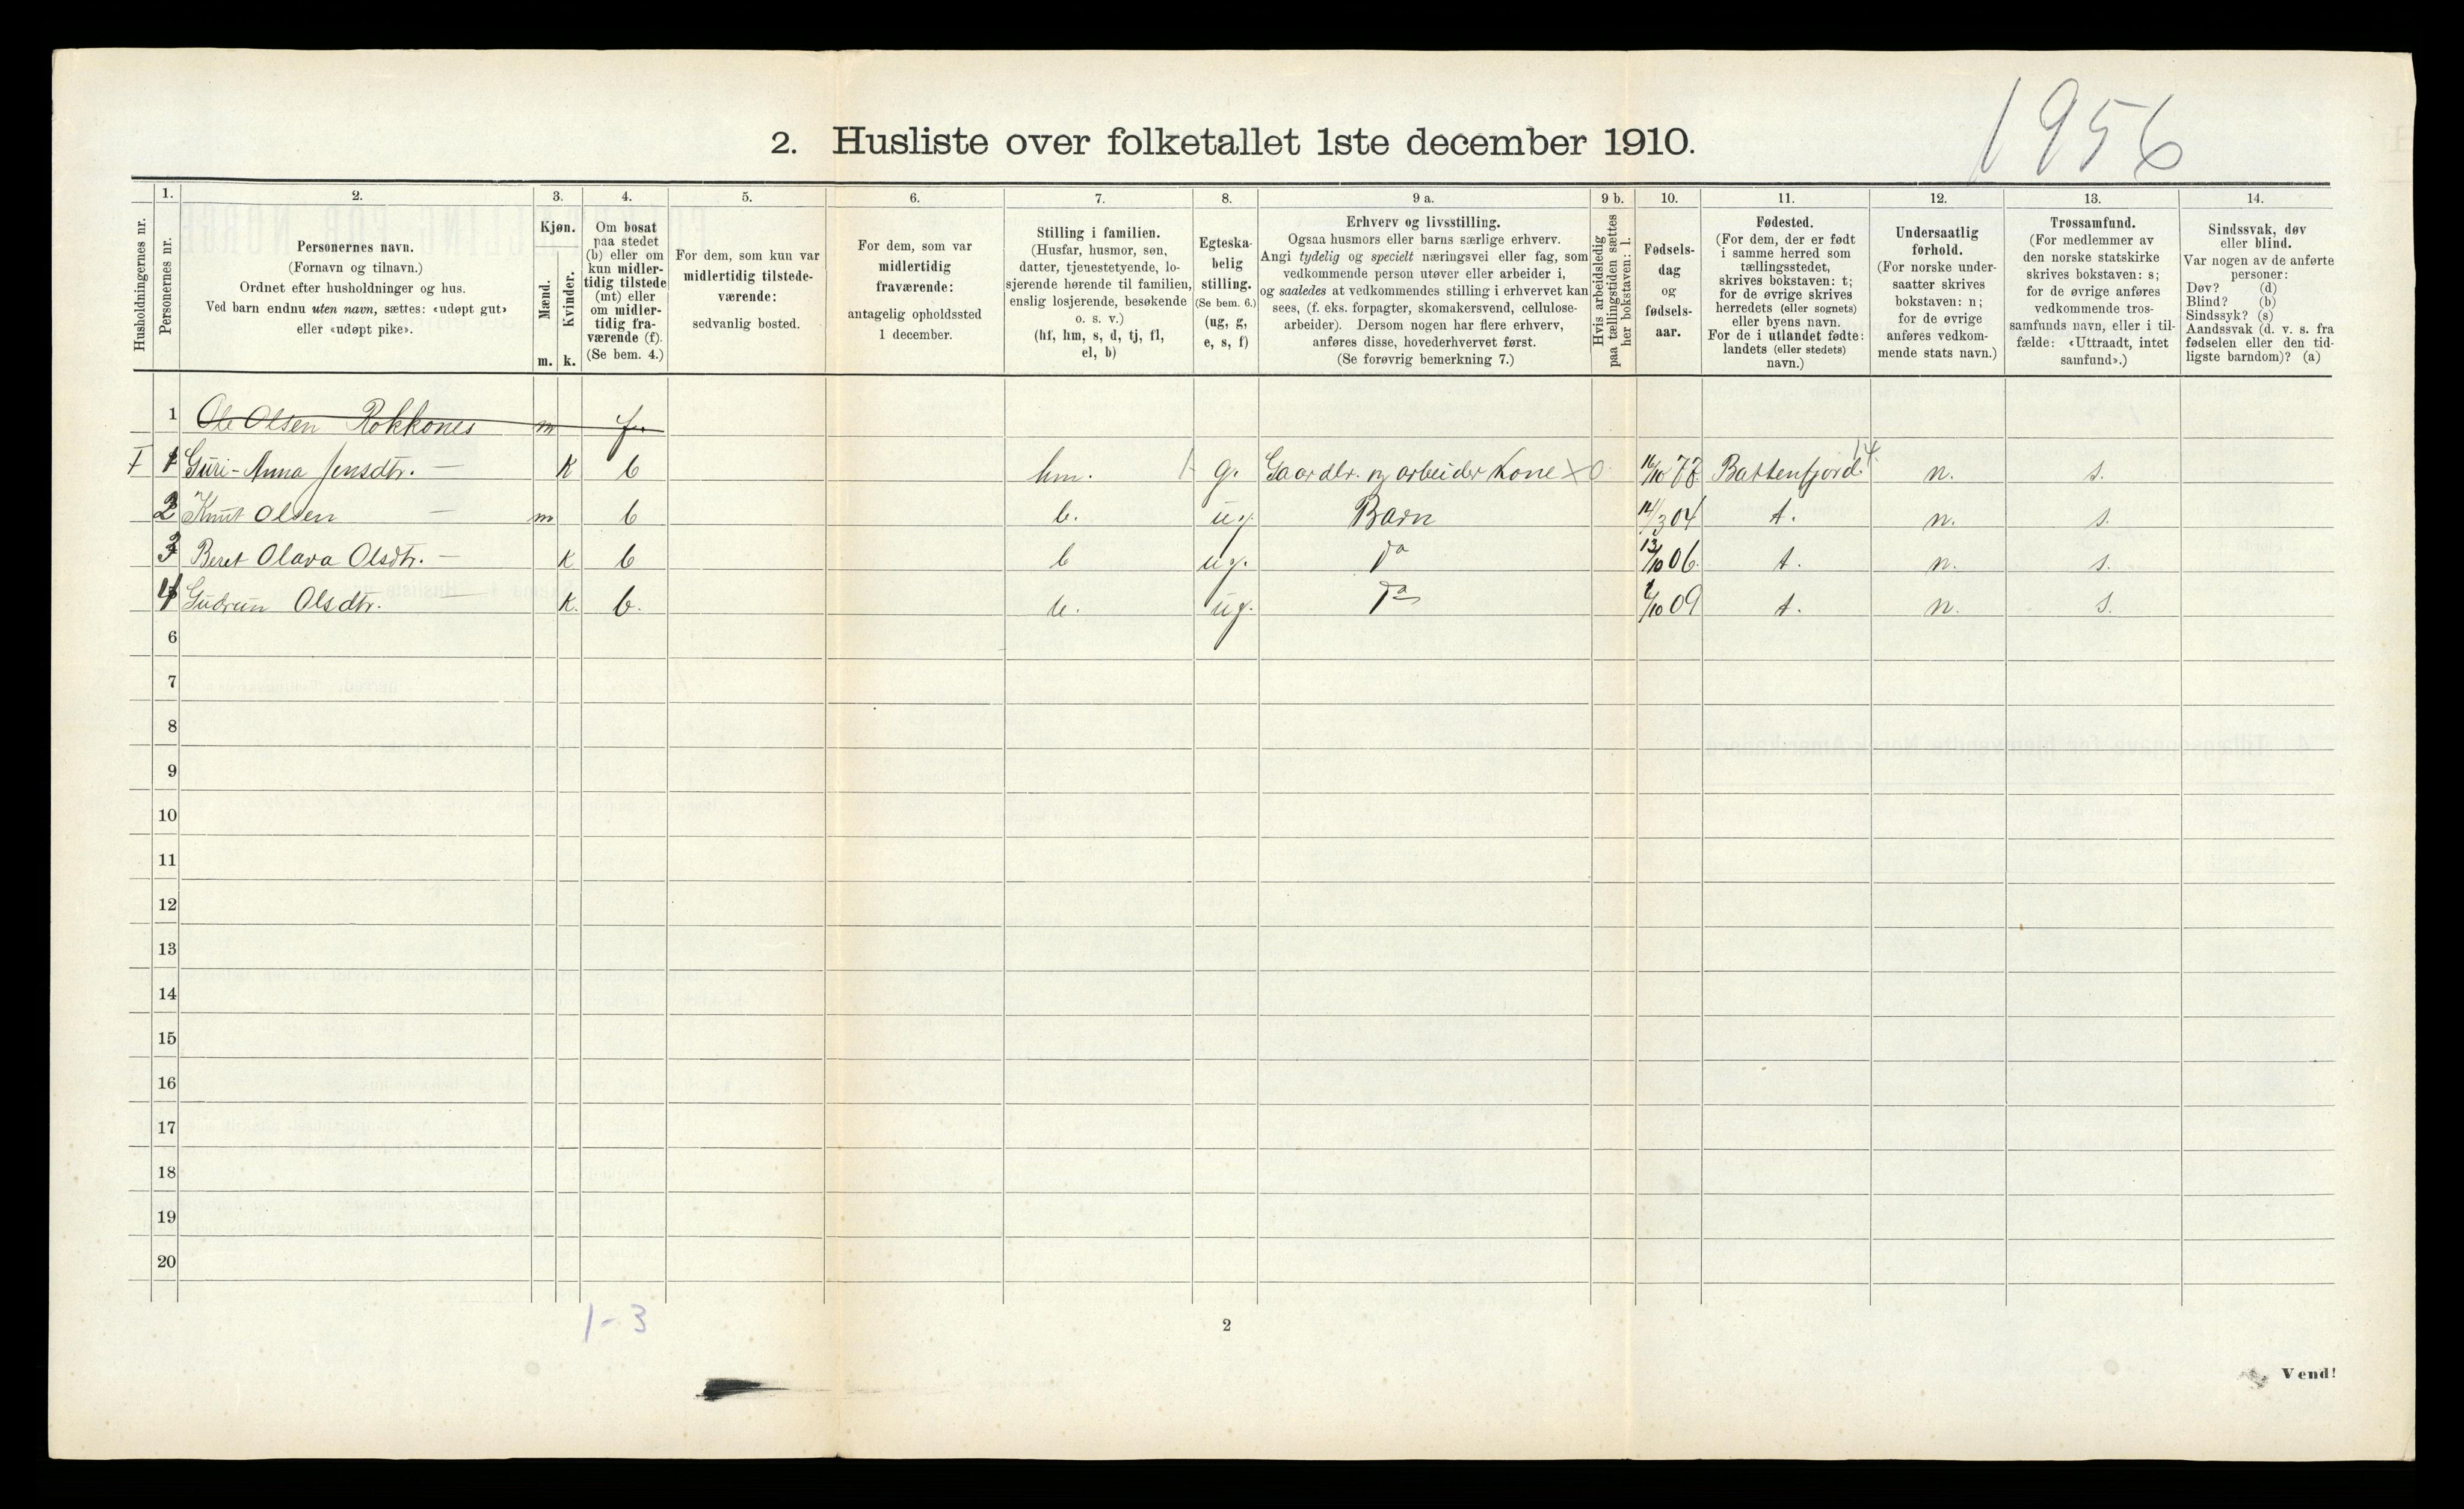 1956
2. Husliste over folketallet 1ste december 1910.
Husholdningernes nr.
1.
Personernes nr.
2.
Personernes navn.
(Fornavn og tilnavn.)
Ordnet efter husholdninger og hus.
Ved barn endnu uten navn, sættes: «udøpt gut»
eller «udøpt pike».
3.
Kjøn.
Mænd.
m.
Kvinder.
k.
4.
Om bosat
paa stedet
(b) eller om
kun midler-
tidig tilstede
(mt) eller
om midler-
tidig fra-
værende (f).
(Se bem. 4.)
5.
For dem, som kun var
midlertidig tilstede-
værende:
sedvanlig bosted.
6.
For dem, som var
midlertidig
fraværende:
antagelig opholdssted
1 december.
7.
Stilling i familien.
(Husfar, husmor, søn,
datter, tjenestetyende, lo-
sjerende hørende til familien,
enslig losjerende, besøkende
o. s. v.)
(hf, hm, s, d, tj, fl,
el, b)
8.
Egteska-
belig
stilling.
(Se bem. 6.)
(ug, g,
e, s, f)
9 a.
Erhverv og livsstilling.
Ogsaa husmors eller barns særlige erhverv.
Angi tydelig og specielt næringsvei eller fag, som
vedkommende person utøver eller arbeider i,
og saaledes at vedkommendes stilling i erhvervet kan
sees, (f. eks. forpagter, skomakersvend, cellulose-
arbeider). Dersom nogen har flere erhverv,
anføres disse, hovederhvervet først.
(Se forøvrig bemerkning 7.)
9 b.
Hvis arbeidsledig
paa tællingstiden sættes
her bokstaven: l.
10.
Fødsels-
dag
og
fødsels-
aar.
11.
Fødested.
(For dem, der er født
i samme herred som
tællingsstedet,
skrives bokstaven: t;
for de øvrige skrives
herredets (eller sognets)
eller byens navn.
For de i utlandet fødte:
landets (eller stedets)
navn.)
12.
Undersaatlig
forhold.
(For norske under-
saatter skrives
bokstaven: n;
for de øvrige
anføres vedkom-
mende stats navn.)
13.
Trossamfund.
(For medlemmer av
den norske statskirke
skrives bokstaven: s;
for de øvrige anføres
vedkommende tros-
samfunds navn, eller i til-
fælde: «Uttraadt, intet
samfund».)
14.
Sindssvak, døv
eller blind.
Var nogen av de anførte
personer:
Døv? (d)
Blind? (b)
Sindssyk? (s)
Aandssvak (d. v. s. fra
fødselen eller den tid-
ligste barndom)? (a)
1 Ole Olsen Rokkones m f
1 Guri-Anna Jensdtr. — K b hm. g. Gaardbr. og arbeider Kone X 0 16/10 77. Battenfjord. 14 n. s.
2 Knut Olsen — m b b. ug. Barn 14/3 04 t. n. s.
3 Beret Olava Olsdtr. — K b b ug. Do 13/10 06. t. n. s.
4 Gudrun Olsdtr. — K. b. b. ug. Do /10 09 t. n. s.
6
7
8
9
10
11
12
13
14
15
16
17
18
19
20
1-3
2
Vend!